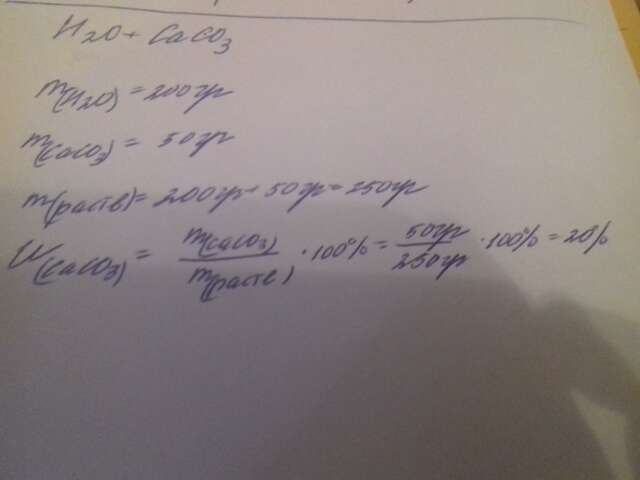 H2O + CaCO3
m(H2O) = 200гр
m(CaCO3) = 50гр
m(раств) = 200гр + 50гр = 250гр
W(CaCO3) = m(CaCO3) / m(раств) · 100% = 50гр / 250гр · 100% = 20%